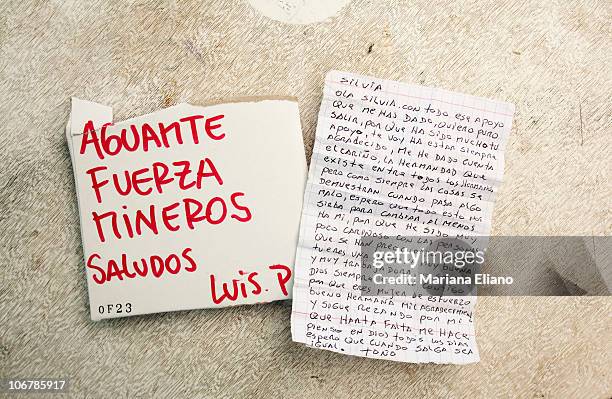 AGUANTE
FUERZA
MINEROS
SALUDOS
LUIS. P
0F23
SILVIA
OLA SILVIA. CON TODO ESE APOYO
QUE ME HAS DADO, QUIERO PURO
SALIR, POR QUE HA SIDO MUCHO TU
APOYO, TE VOY HA ESTAR SIEMPRE
AGRADECIDO, ME HE DADO CUENTA
EL CARIÑO, LA HERMANDAD QUE
EXISTE ENTRA TODOS LOS HERMANOS
PERO COMO SIEMPRE LAS COSAS SE
DEMUESTRAN CUANDO PASA ALGO
MALO, ESPERO QUE TODO ESTO NOS
SIRBA PARA CAMBIAR, AL MENOS
HA MI, POR QUE HE SIDO MUY
POCO CARIÑOSO CON LAS
QUE SE HAN
TU ERES UNA
Y MUY TRABAJADORA
DIOS SIEMPRE
POR QUE ERES MUJER DE ESFUERZO
BUENO HERMANA MIL
Y SIGUE REZANDO POR MI
QUE HARTA FALTA ME HACE
PIENSO EN DIOS TODOS LOS DIAS
ESPERO QUE CUANDO SALGA SEA
IGUAL. TOÑO
gettyimages
Credit: Mariana Eliano
106785917